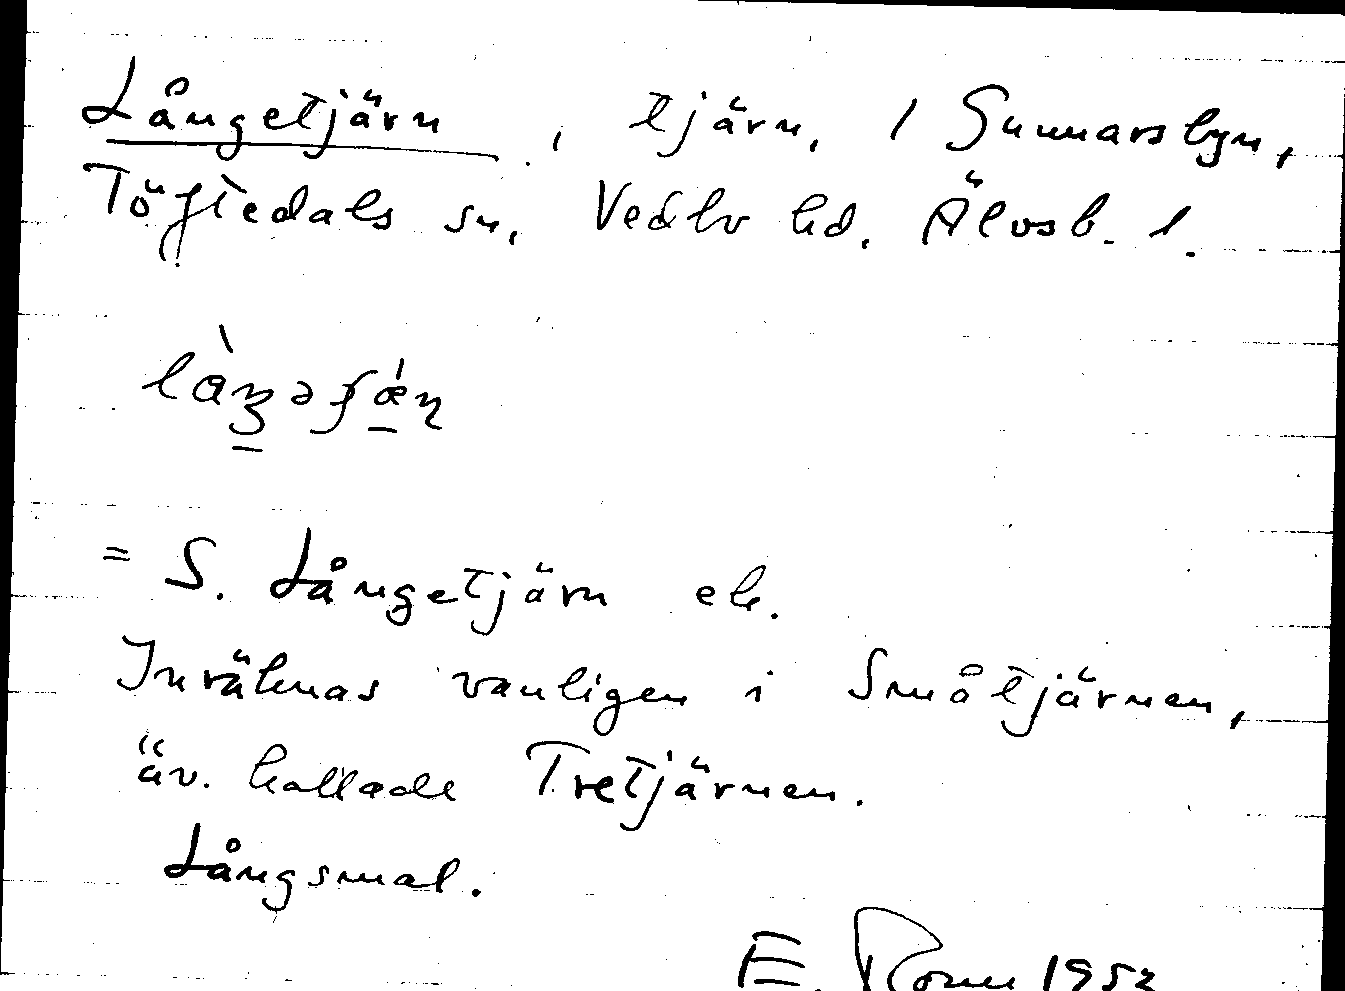 Långetjärn, tjärn, i Gunnarsbyn,
Töftedals sn, Vedbo hd. Älvsb. l.
= S. Långetjärn ek.
Inräknas vanligen i Småtjärnen,
äv. kallade Tretjärnen.
Långsmal.
E. 1952